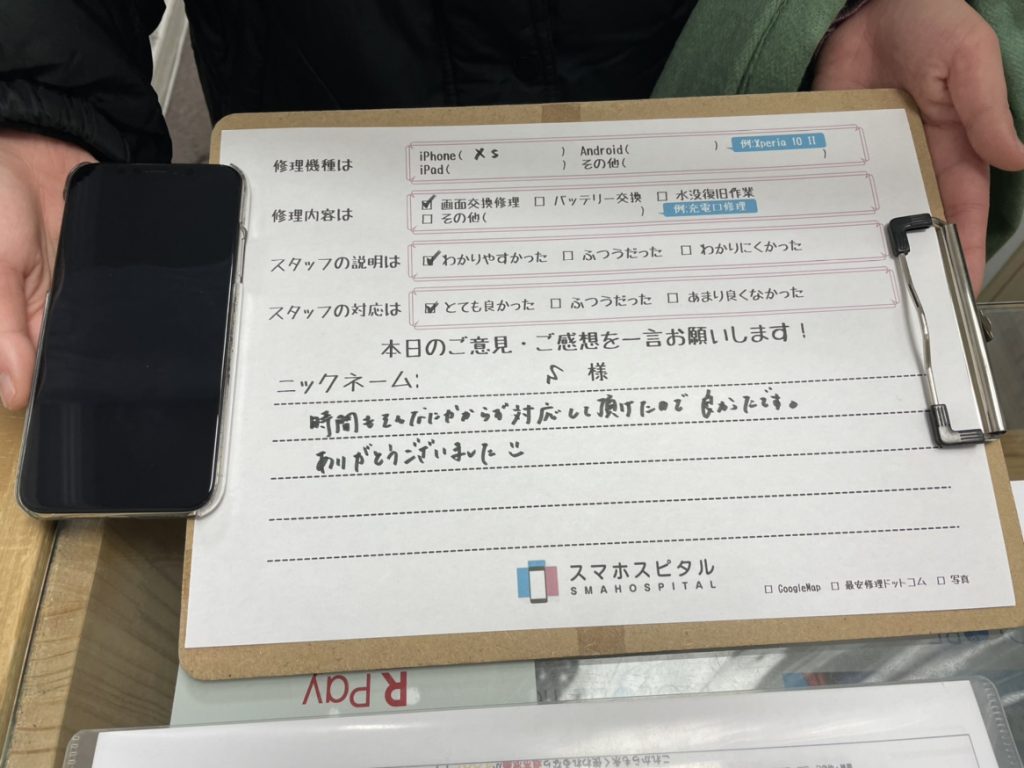 修理機種は
iPhone( XS ) Android( ) 例:Xperia 10 II
iPad( ) その他( )
修理内容は
☑ 画面交換修理 □ バッテリー交換 □ 水没復旧作業
□ その他( ) 例:充電口修理
スタッフの説明は ☑ わかりやすかった □ ふつうだった □ わかりにくかった
スタッフの対応は ☑ とても良かった □ ふつうだった □ あまり良くなかった
本日のご意見・ご感想を一言お願いします!
ニックネーム: S 様
時間もそんなにかからず対応して頂けたので良かったです。
ありがとうございました
スマホスピタル
SMAHOSPITAL
□ GoogleMap □ 最安修理ドットコム □ 写真
R Pay